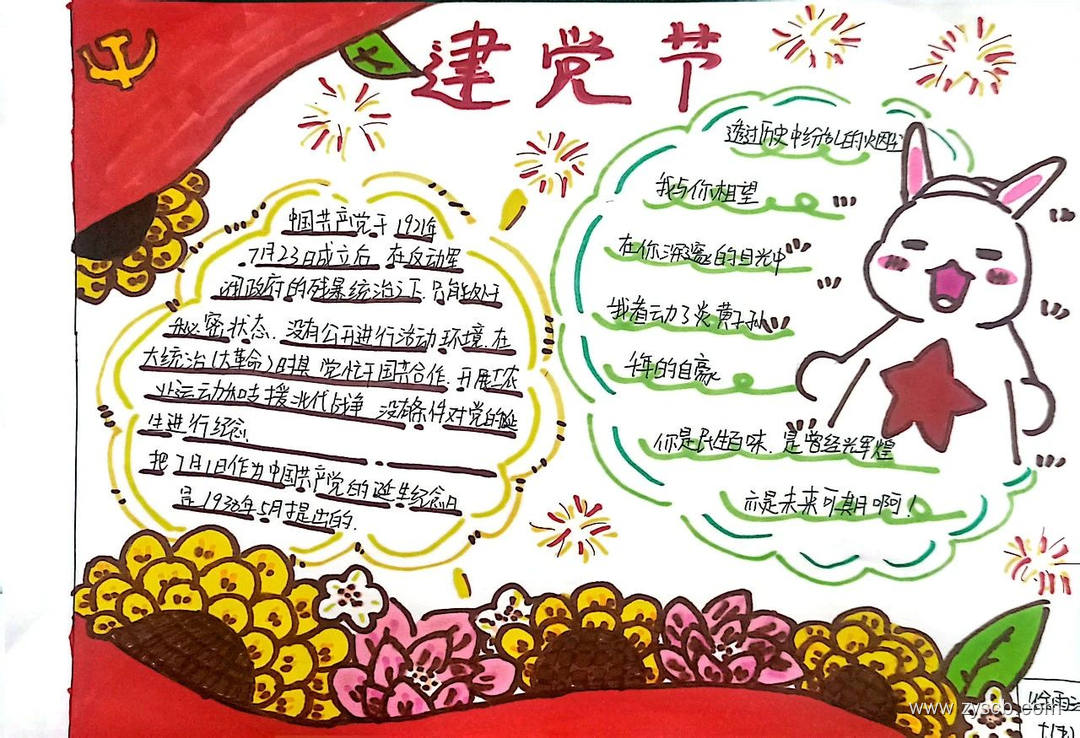 建党节
中国共产党于1921年
7月23日成立后，在反动军
阀政府的残暴统治之下，只能处于
秘密状态、没有公开进行活动环境.在
大统治(大革命)时具 党忙于国共合作.开展工农
业运动和支援北代战争 没有条件对党的诞
生进行纪念
把7月1日作为中国共产党的诞生纪念日
是1938年5月提出的.
透过历史中纷乱的火因尘
我与你相望
在你深邃的目光中
我看动了炎黄子孙
千年的自豪
你是民生百味、是曾经光辉煌
亦是未来可期啊！
www.zyscb.com